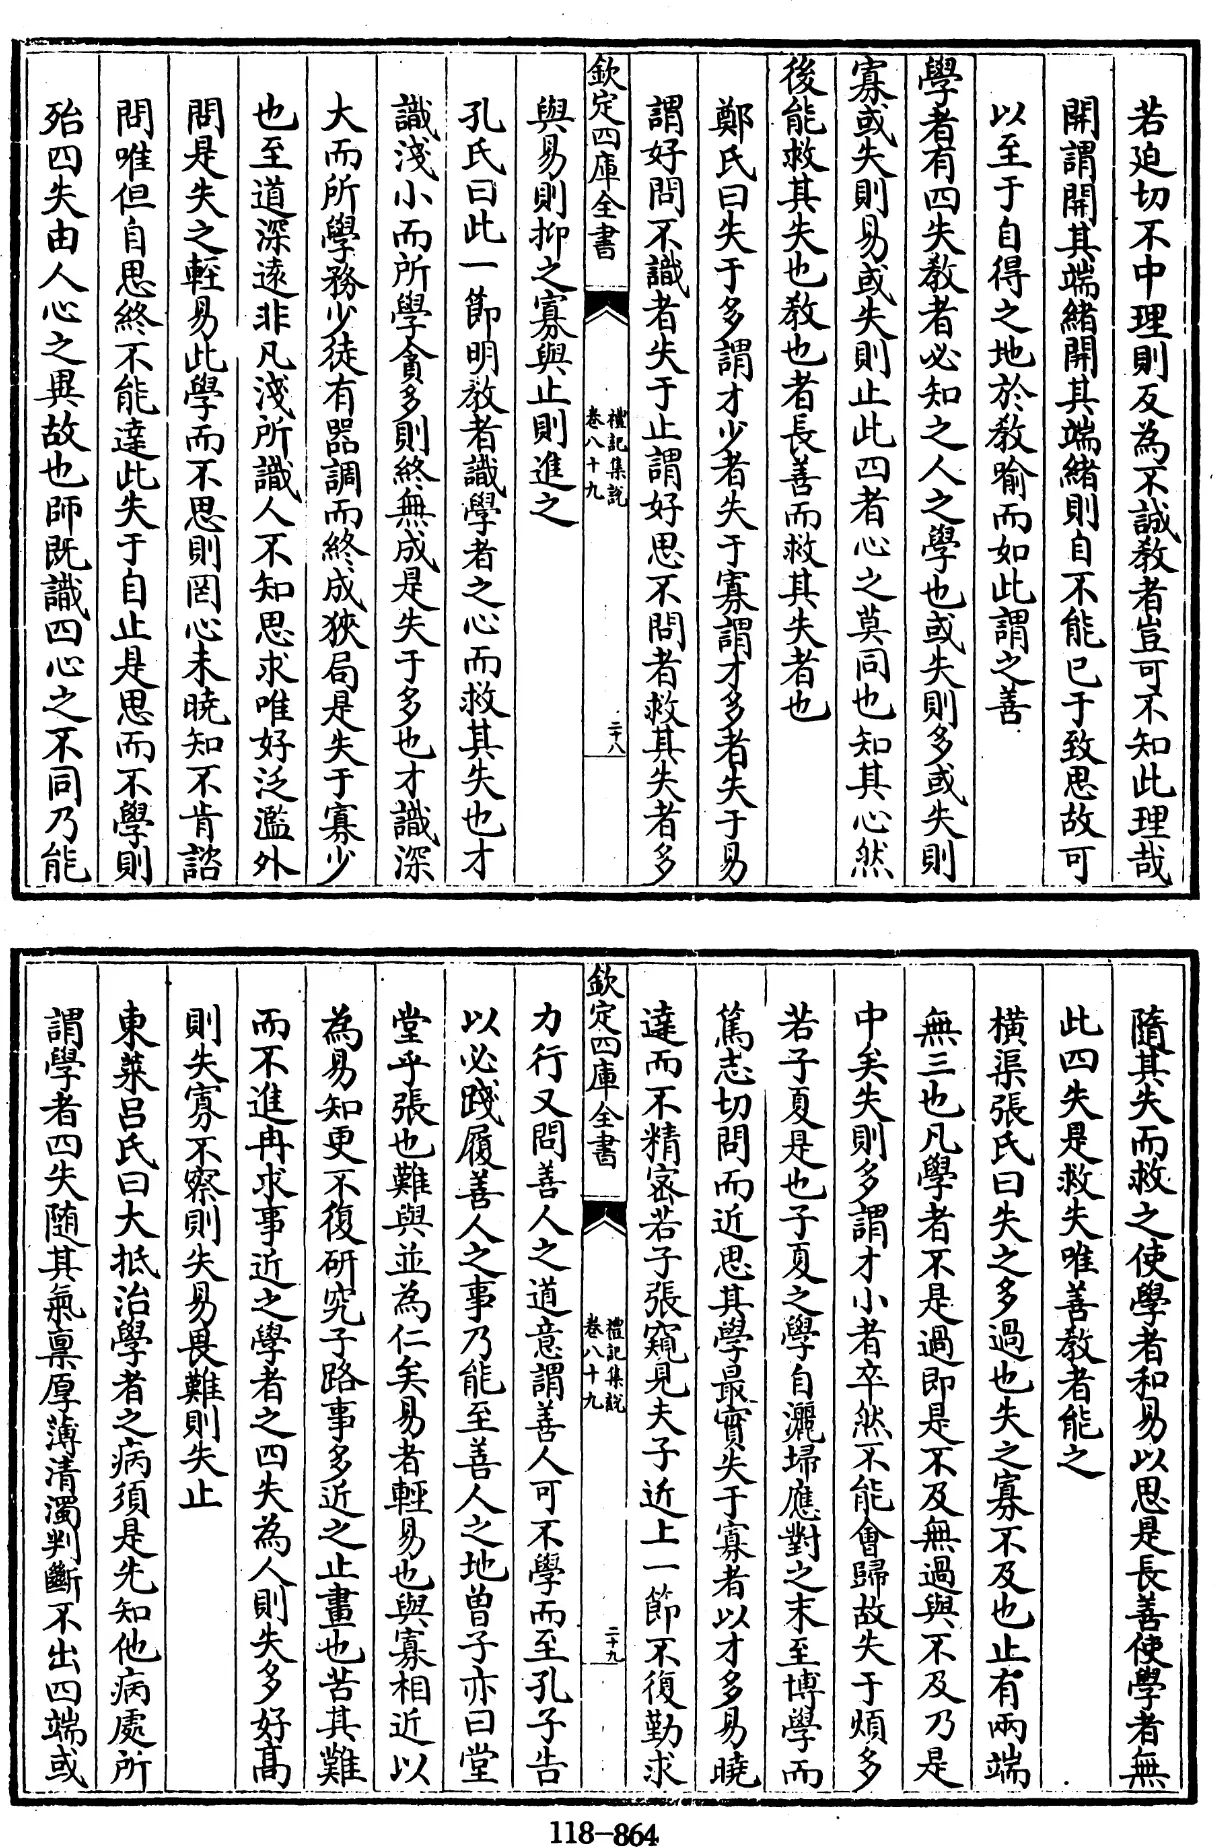 若迫切不中理則反為不誠教者豈可不知此理哉
開謂開其端緒開其端緒則自不能已于致思故可
以至于自得之地於教喻而如此謂之善
學者有四失教者必知之人之學也或失則多或失則
寡或失則易或失則止此四者心之莫同也知其心然
後能救其失也教也者長善而救其失者也
鄭氏曰失于多謂才少者失于寡謂才多者失于易
謂好問不識者失于止謂好思不問者救其失者多
欽定四庫全書
禮記集說
卷八十九
二十八
與易則抑之寡與止則進之
孔氏曰此一節明教者識學者之心而救其失也才
識淺小而所學貪多則終無成是失于多也才識深
大而所學務少徒有器調而終成狹局是失于寡少
也至道深遠非凡淺所識人不知思求唯好泛濫外
問是失之輕易此學而不思則罔心未曉知不肯諮
問唯但自思終不能達此失于自止是思而不學則
殆四失由人心之異故也師既識四心之不同乃能
隨其失而救之使學者和易以思是長善使學者無
此四失是救失唯善教者能之
橫渠張氏曰失之多過也失之寡不及也止有兩端
無三也凡學者不是過即是不及無過與不及乃是
中矣失則多謂才小者卒然不能會歸故失于煩多
若子夏是也子夏之學自灑埽應對之末至博學而
篤志切問而近思其學最實失于寡者以才多易曉
達而不精密若子張窺見夫子近上一節不復勤求
欽定四庫全書
禮記集說
卷八十九
二十九
力行又問善人之道意謂善人可不學而至孔子告
以必踐履善人之事乃能至善人之地曾子亦曰堂
堂乎張也難與並為仁矣易者輕易也與寡相近以
為易知更不復研究子路事多近之止畫也苦其難
而不進冉求事近之學者之四失為人則失多好高
則失寡不察則失易畏難則失止
東萊呂氏曰大抵治學者之病須是先知他病處所
謂學者四失隨其氣稟厚薄清濁判斷不出四端或
118-864